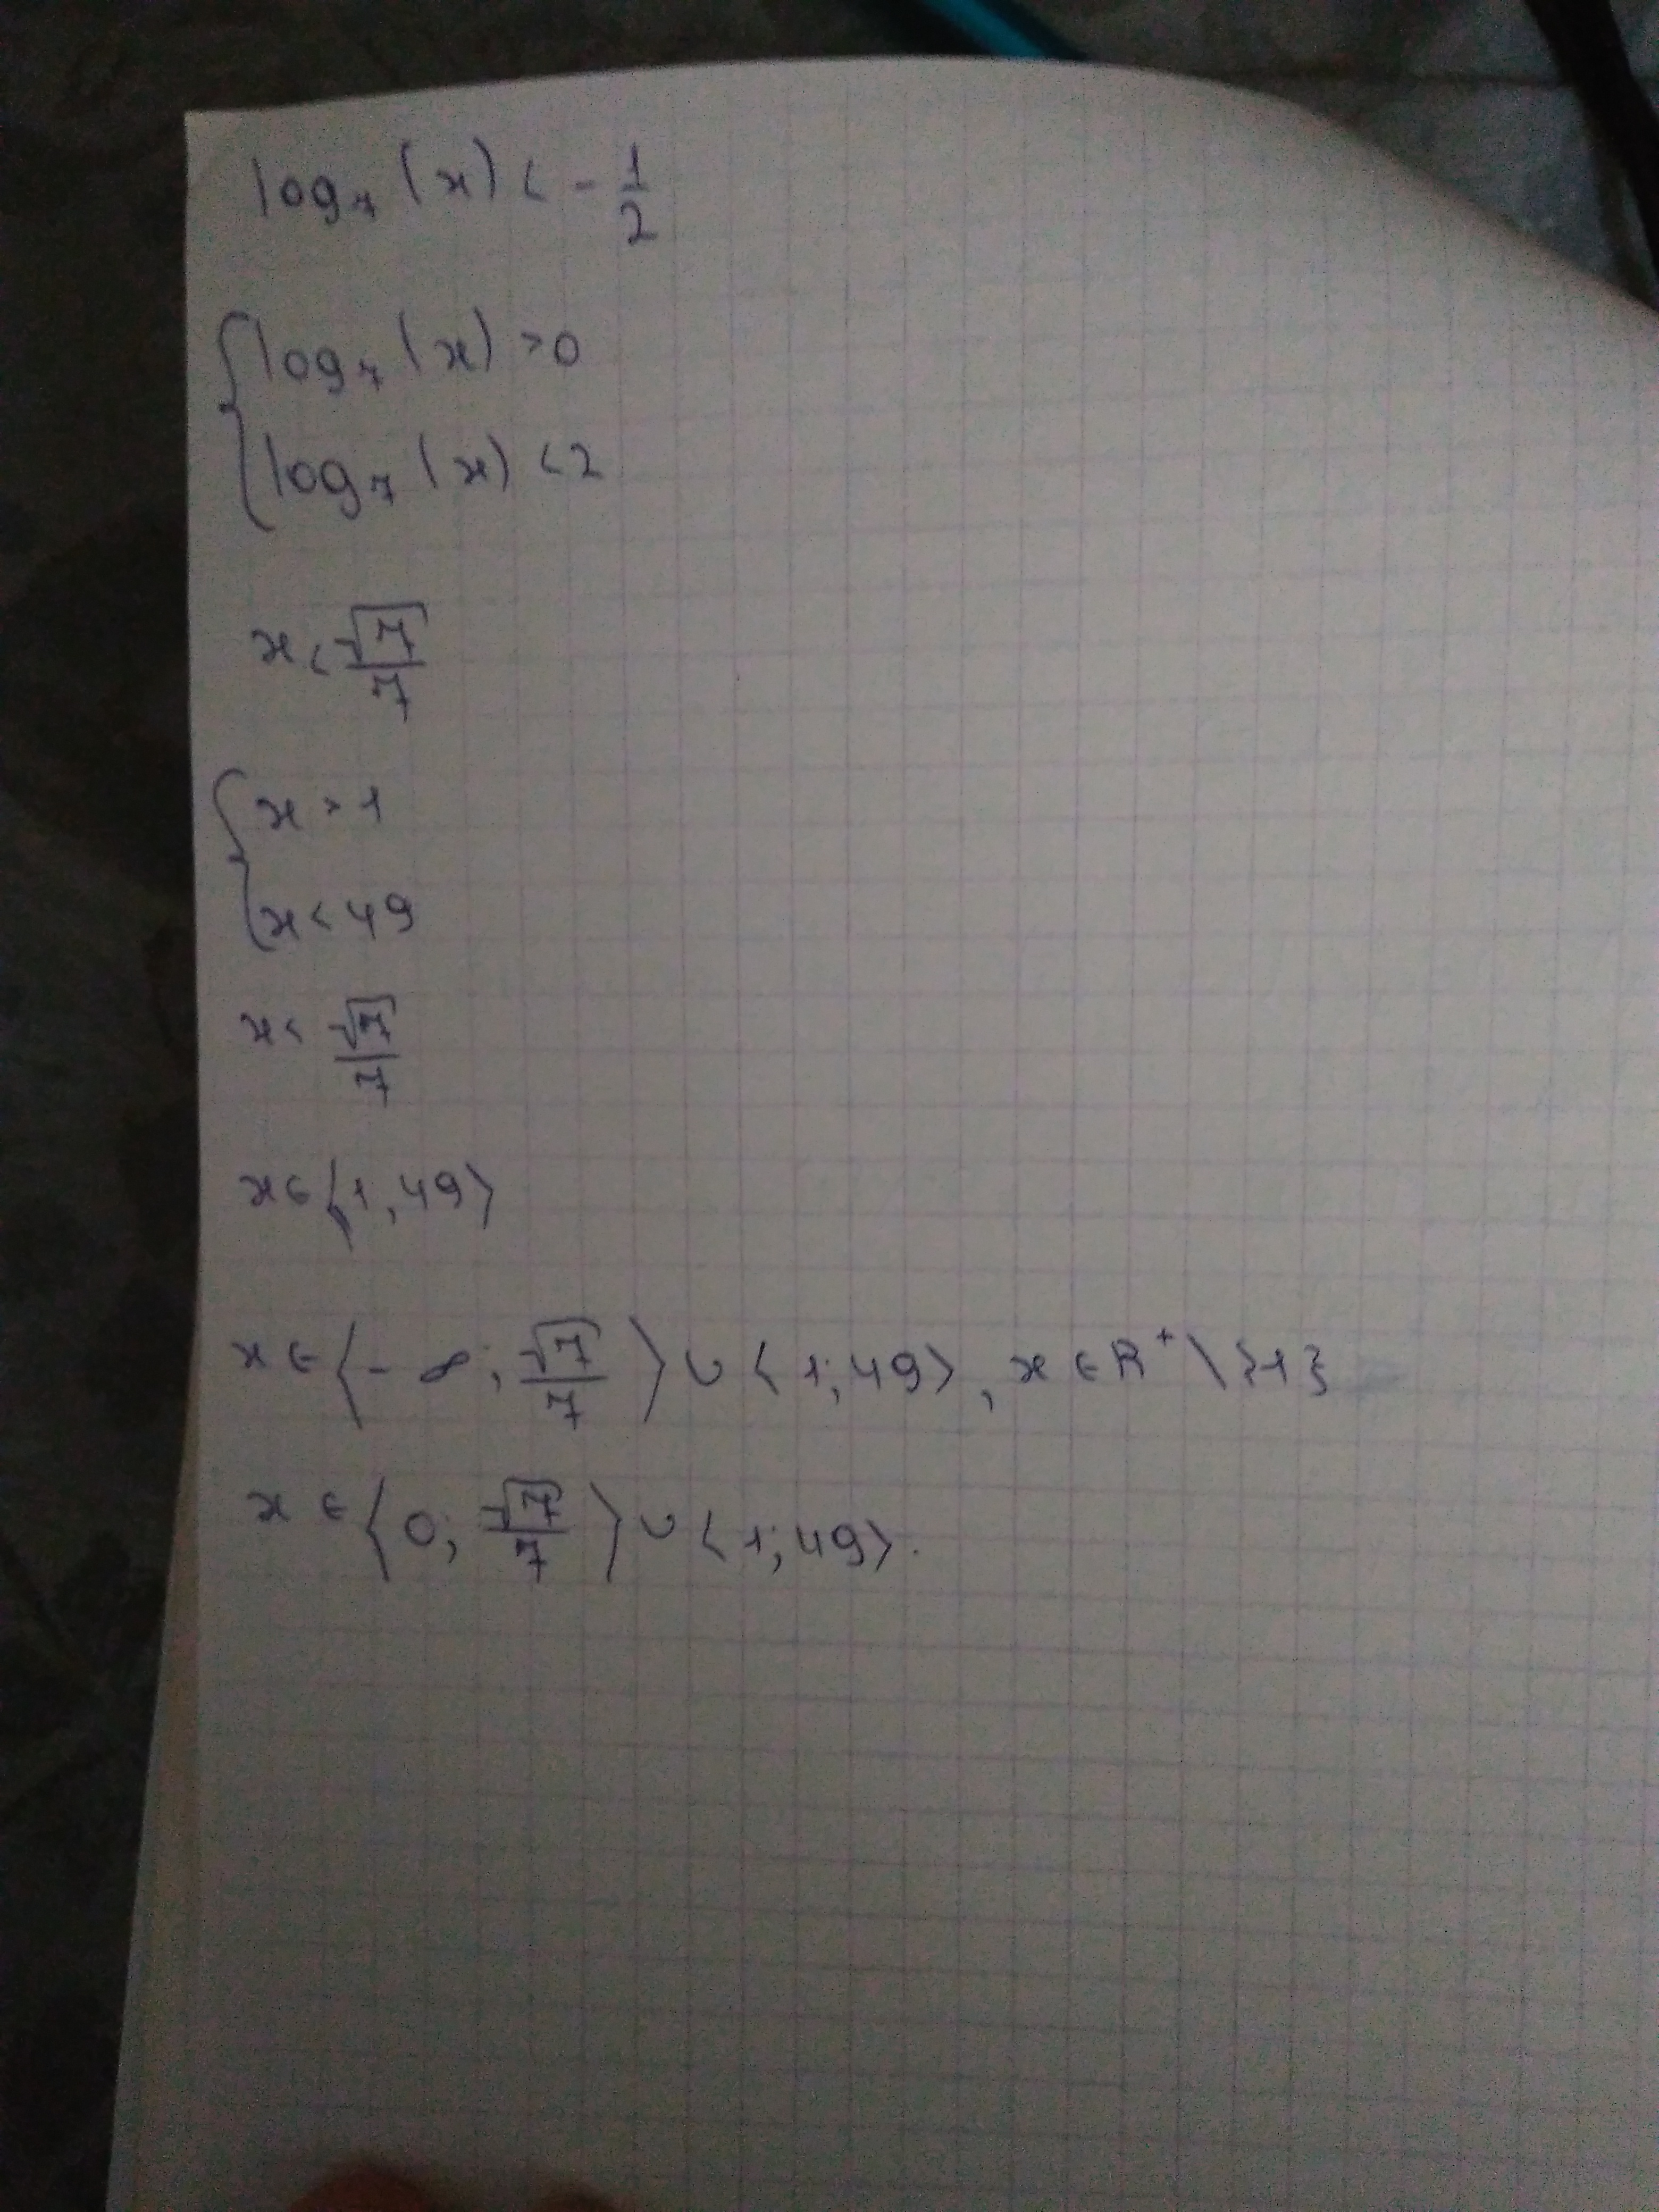 log₇ (x) < - 1/2
{ log₇ (x) > 0
log₇ (x) < 2
x < √7/7
{ x > 1
x < 49
x < √7/7
x ∈ ⟨1, 49⟩
x ∈ ⟨- ∞; √7/7⟩ ∪ ⟨1; 49⟩, x ∈ R⁺ \ {1}
x ∈ ⟨0; √7/7⟩ ∪ ⟨1; 49⟩.